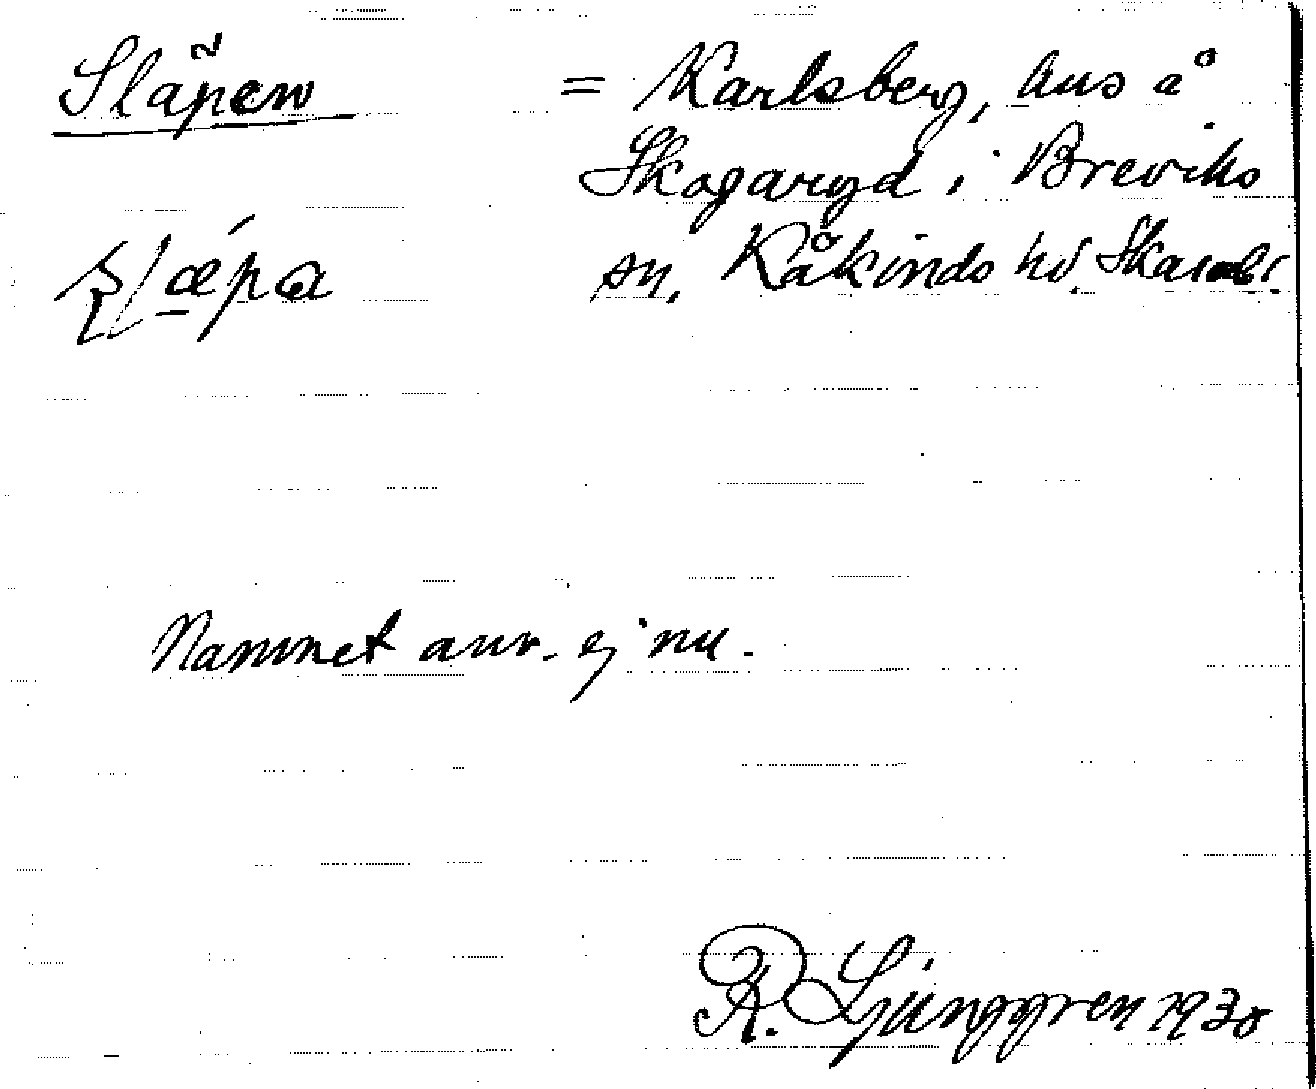 Släpen = Karlsberg, hus å
Skogaryd i Breviks
sn, Kåkinds hd. Skarabl.
slǽpa
Namnet anv. ej nu.
R. Ljunggren 1930